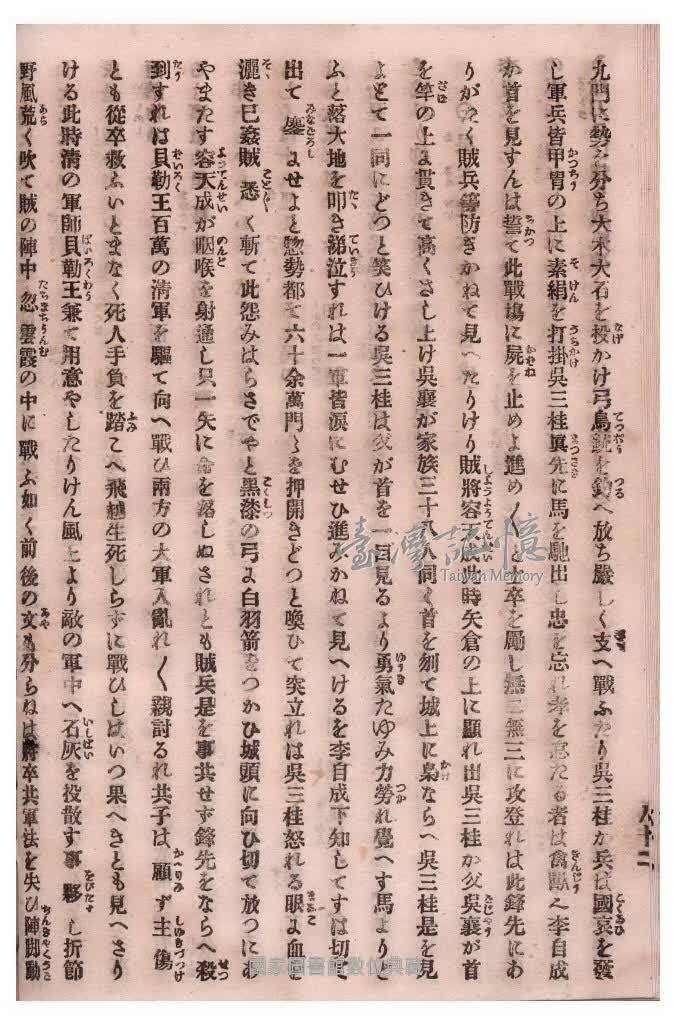 九門に勢を分ち大木大石を投かけ弓鳥銃を釣へ放ち嚴しく支へ戰ふたり吳三桂か兵は國哀を發
し軍兵皆甲冑の上に素絹を打掛吳三桂眞先に馬を馳出し忠を忘れ孝を忘たる者は禽獸へ李自成
か首を見すんは誓て此戰塲に屍を止めよ進め〱と士卒を勵し無二無三に攻登れは此鋒先にあ
りがたく賊兵等防ぎかねて見へたりけり賊將容天成此時矢倉の上に顯れ出吳三桂か父吳襄が首
を竿の上よ貫きて高くさし上け吳襄が家族三十八人同く首を刎て城上に梟ならへ吳三桂是を見
よとて一同にどつと笑ひける吳三桂は父が首を一目見るより勇氣たゆみ力勞れ覺へす馬よりど
ふと落大地を叩き涕泣すれは一軍皆淚にむせひ進みかねて見へけるを李自成下知してすは切て
出て鏖よせよと惣勢都て六十余萬門〻を押開きどつと喚ひて突立れは吳三桂怒れる眼よ血を
灑き已姦賊悉く斬て此怨みはらさでやと黑漆の弓よ白羽箭をつかひ城頭に向ひ切て放つにあ
やまたす容天成が咽喉を射通し只一矢に命を落しぬされとも賊兵是を事共せず鋒先をならへ殺
到すれは貝勒王百萬の淸軍を驅て向へ戰ひ兩方の大軍入亂れ〱親討るれ共子は顧ず主傷
とも從卒救ふいとまなく死人手負を踏こへ飛越生死しらずに戰ひしはいつ果へきとも見へさり
ける此時淸の軍師貝勒王兼て用意やしたりけん風上より敵の軍中へ石灰を投散す事夥し折節
野風荒く吹て賊の陣中忽雲霞の中に戰ふ如く前後の文も分らねは將卒共軍法を失ひ陣脚動
八十二
臺灣記憶
Taiwan Memory
國家圖書館數位典藏